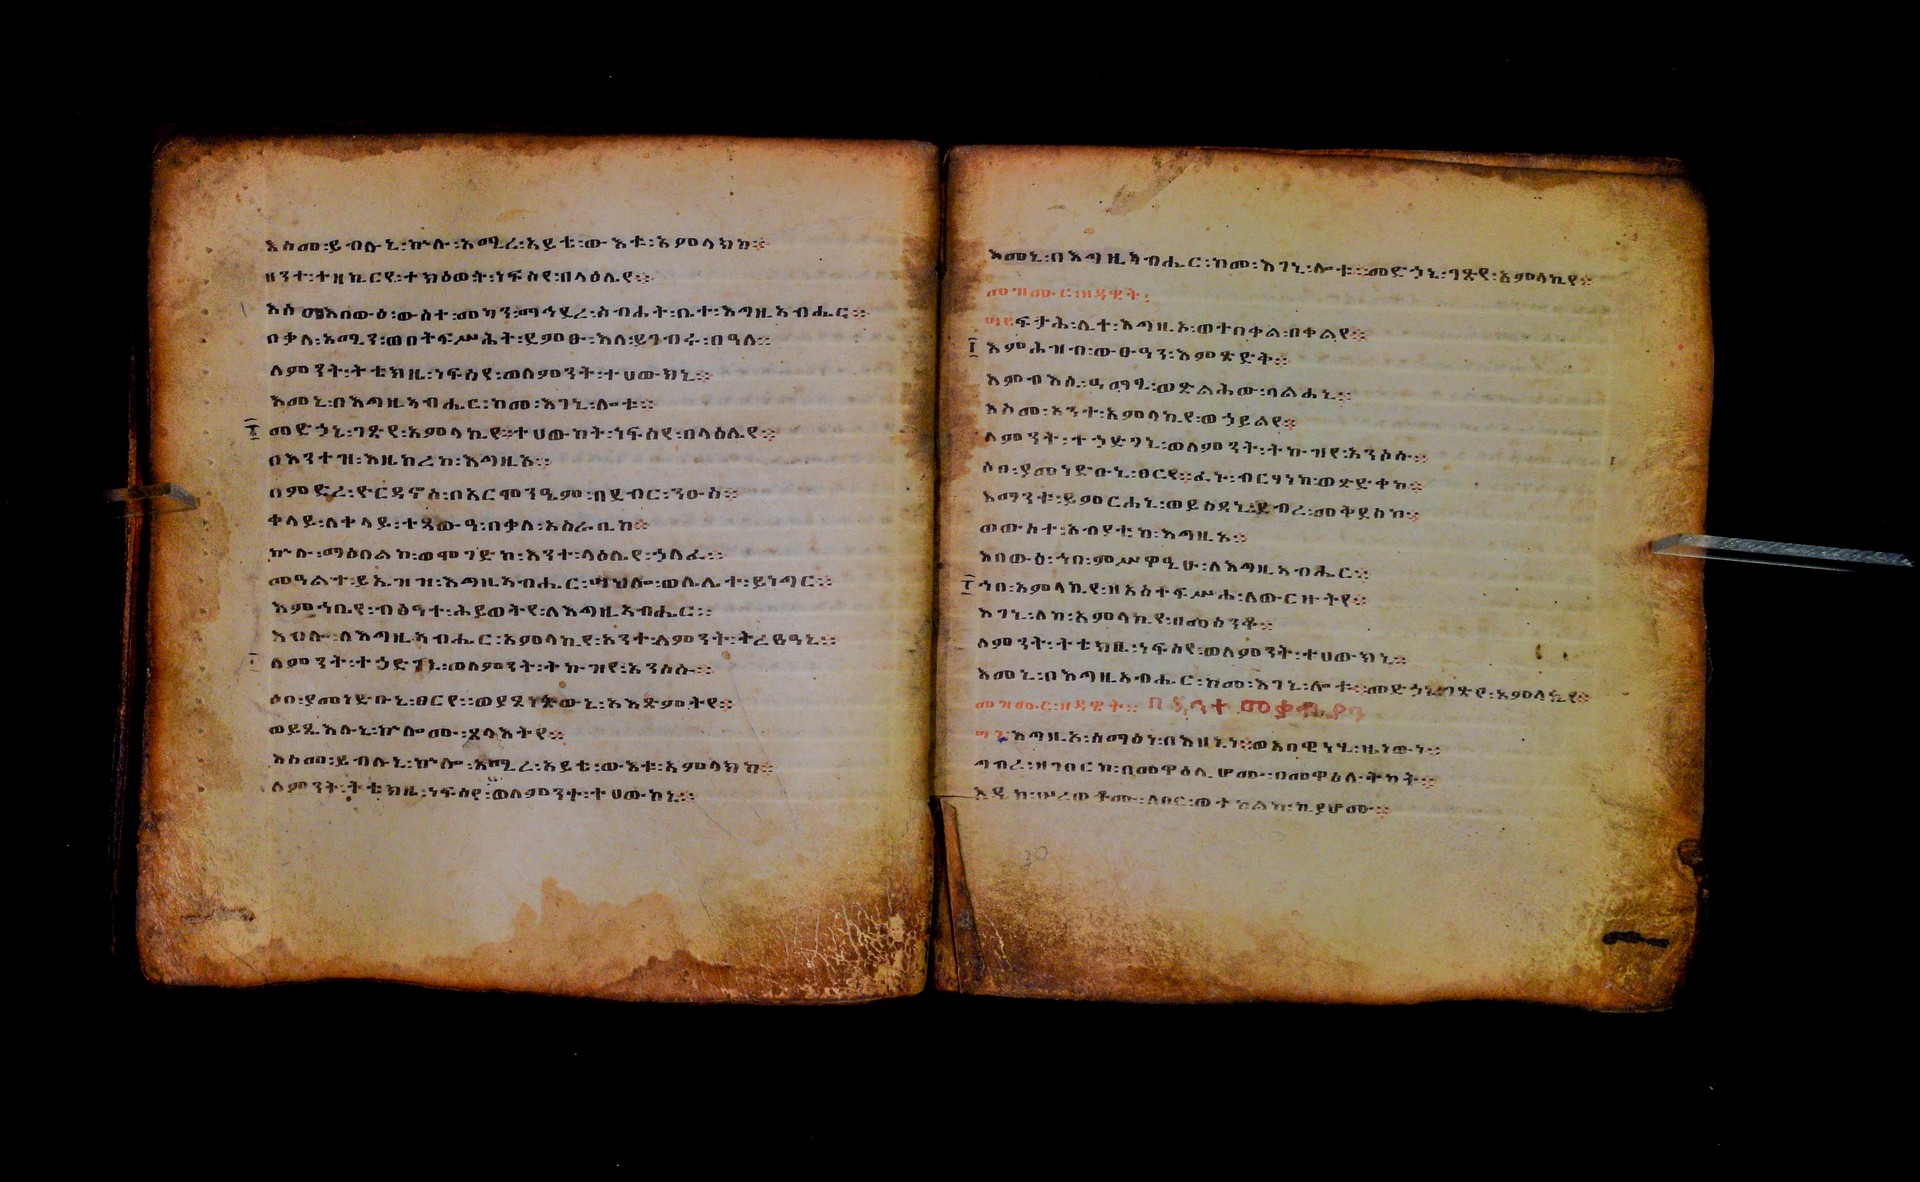 እስመ፡ይብሉኒ፡ኵሉ፡አሚረ፡አይቴ፡ውእቱ፡አምላክከ።
ዘንተ፡ተዘኪርየ፡ተክዕወት፡ነፍስየ፡በላዕሌየ።
እስመ፡እበውእ፡ውስተ፡መካን፡ማኅደረ፡ስብሐት፡ቤተ፡እግዚአብሔር።
በቃለ፡አሚን፡ወበትፍሥሕት፡ደምፁ፡እለ፡ይገብሩ፡በዓለ።
ለምንት፡ትቴክዚ፡ነፍስየ፡ወለምንት፡ተሀውክኒ።
እመኒ፡በእግዚአብሔር፡ከመ፡እገኒ፡ሎቱ።
መድኃኒ፡ገጽየ፡አምላኪየ።ተሀውከት፡ነፍስየ፡በላዕሌየ።
በእንተዝ፡እዜከረከ፡እግዚኦ።
በምድረ፡ዮርዳኖስ፡በአርሞንዔም፡በደብር፡ንዑስ።
ቀላይ፡ለቀላይ፡ተጼውዓ፡በቃለ፡አስራቢከ።
ኵሉ፡ማዕበልከ፡ወሞገድከ፡እንተ፡ላዕሌየ፡ኃለፈ።
መዓልተ፡ይኤዝዝ፡እግዚአብሔር፡ሣህሎ፡ወሌሊተ፡ይነግር።
እምኀቤየ፡ብፅዓተ፡ሕይወትየ፡ለእግዚአብሔር።
እብሎ፡ለእግዚአብሔር፡አምላኪየ፡አንተ፡ለምንት፡ትረስዓኒ።
ለምንት፡ተኃድገኒ፡ወለምንት፡ትኩዝየ፡አንሶሱ።
ሶበ፡ያመነድቡኒ፡ፀርየ።ወያጼንጽውኒ፡አእጽምትየ።
ወይጼእሉኒ፡ኵሎሙ፡ጸላእትየ።
እስመ፡ይብሉኒ፡ኵሎ፡አሚረ፡አይቴ፡ውእቱ፡አምላክከ።
ለምንት፡ትቴክዚ፡ነፍስየ፡ወለምንተ፡ተሀውከኒ።
እመኒ፡በእግዚአብሔር፡ከመ፡እገኒ፡ሎቱ።መድኃኒ፡ገጽየ፡አምላኪየ።
መዝሙር፡ዘዳዊት፡
ፍታሕ፡ሊተ፡እግዚኦ፡ወተበቀል፡በቀልየ።
እምሕዝብ፡ውፁዓን፡እምጽድቅ።
እምብእሲ፡ዓማፂ፡ወጽልሕው፡ባልሐኒ።
እስመ፡አንተ፡አምላኪየ፡ወኃይልየ።
ለምንት፡ተኃድገኒ፡ወለምንት፡ትኩዝየ፡አንሶሱ።
ሶበ፡ያመነድቡኒ፡ፀርየ።ፈኑ፡ብርሃነከ፡ወጽድቀከ።
እማንቱ፡ይምርሐኒ፡ወይስዳኒ፡ደብረ፡መቅደስከ።
ወውስተ፡አብያቲከ፡እግዚኦ።
እበውእ፡ኀበ፡ምሥዋዒሁ፡ለእግዚአብሔር።
ኀበ፡አምላኪየ፡ዘአስተፍሥሐ፡ለውርዙትየ።
እገኒ፡ለከ፡አምላኪየ፡በመሰንቆ።
ለምንት፡ትቴክዚ፡ነፍስየ፡ወለምንት፡ተሀውክኒ።
እመኒ፡በእግዚአብሔር፡ከመ፡እገኒ፡ሎቱ።መድኃኒ፡ገጽየ፡አምላኪየ።
መዝሙር፡ዘዳዊት። በእንተ
እግዚኦ፡ሰማዕነ፡በእዘኒነ።ወአበዊነሂ፡ዜነውነ።
ግብረ፡ዘገበርከ፡በመዋዕሊሆሙ፡በመዋዕለ፡ትካት።
እዴከ፡ሠረወቶሙ፡ለፀር፡ወተከልከ፡ኪያሆሙ።
20